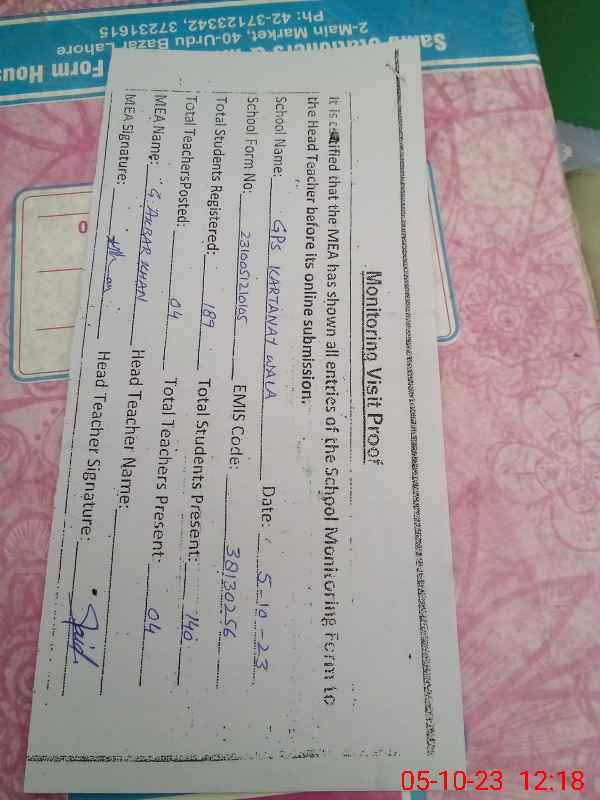 Monitoring Visit Proof
It is certified that the MEA has shown all entries of the School Monitoring Form to
the Head Teacher before its online submission.
School Name: GPS KARTANAY WALA Date: 5-10-23
School Form No: 231005121015 EMIS Code: 38130256
Total Students Registered: 189 Total Students Present: 140
Total TeachersPosted: 04 Total Teachers Present: 04
MEA Name: G. AKBAR KHAN Head Teacher Name:
MEA Signature: Head Teacher Signature: Sajid
Form Hous
2-Main Market, 40-Urdu Bazar Lahore
Ph: 42-37123342, 37231615
05-10-23 12:18